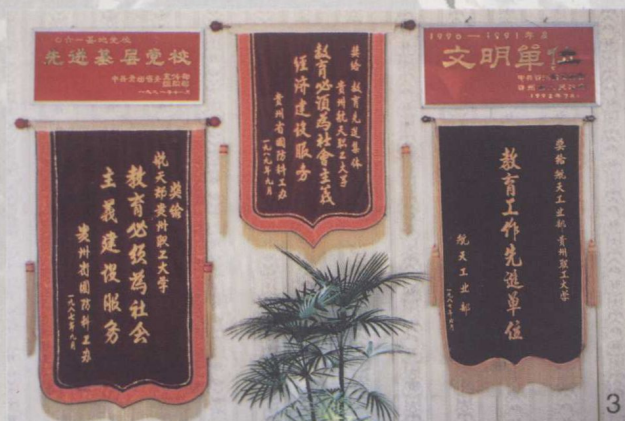 〇六一基地党校
先进基层党校
一九九一年七月
奖给 教育先进集体
贵州航天职工大学
教育必须为社會主義
经济建设服务
贵州省国防科工办
一九八九年九月
1990—1991年度
文明单位
奖给
航天部贵州职工大学
教育必须為社会
主義建设服务
贵州省国防科工办
一九八七年九月
奖给航天工业部贵州职工大学
教育工作先进单位
航天工业部
3